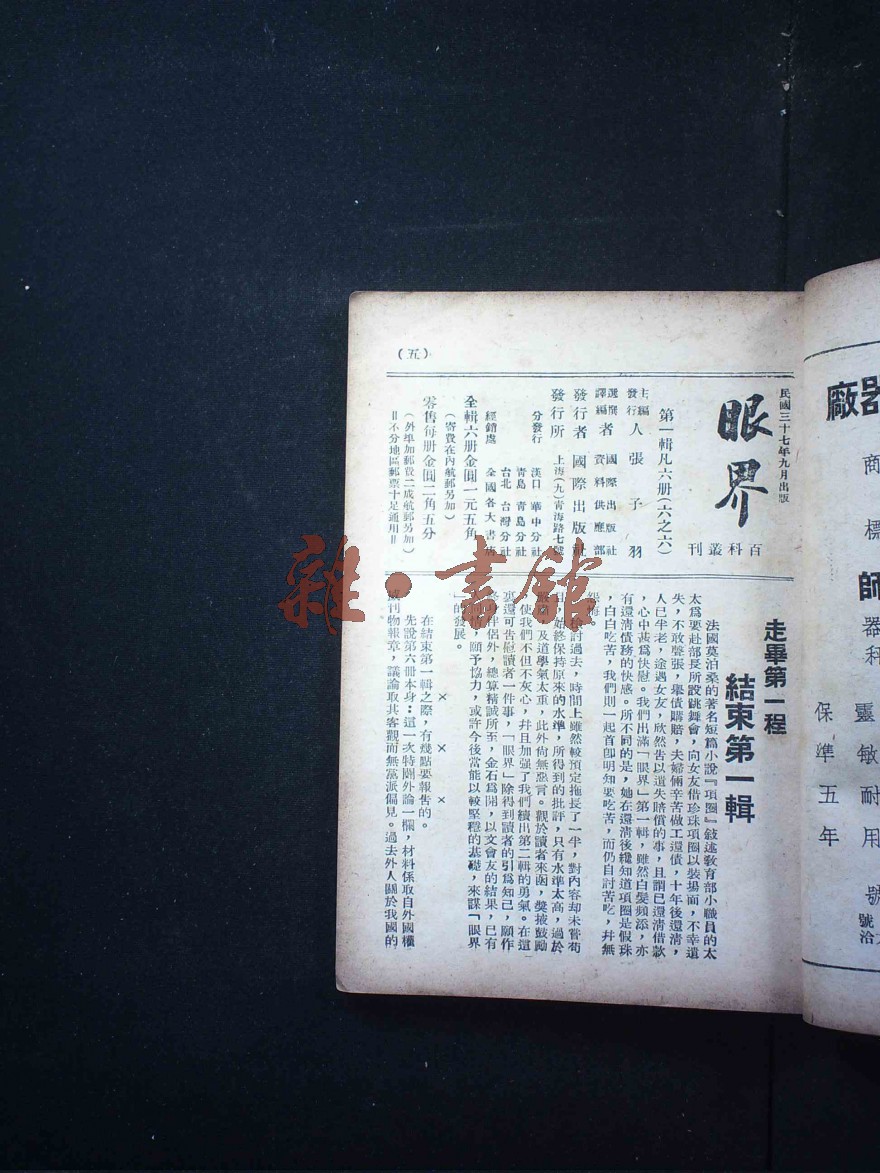 民國三十七年九月出版
眼界
百科叢刊
第一輯凡六册(六之六)
主編發行人 張子羽
選譯者 國際出版社資料供應部
發行者 國際出版社
發行所 上海(九)青海路七號
分發行
漢口 華中分社
青島 青島分社
台北 台灣分社
經銷處 全國各大書
全輯六册金圓一元五角
(寄費在內航郵另加)
零售每册金圓二角五分
(外埠加郵費二成航郵另加)
=不分地區郵票十足通用=
(五)
走畢第一程
結束第一輯
法國莫泊桑的著名短篇小說『項圈』敍述敎育部小職員的太
太爲要赴部長所設跳舞會,向女友借珍珠項圈以裝場面,不幸遺
失,不敢聲張,舉債購賠,夫婦倆辛苦做工還債,十年後還淸,
人已半老,途遇女友,欣然告以遺失賠償的事,且謂已還淸借款
,心中甚爲快慰。我們出滿「眼界」第一輯,雖然白髮頻添,亦
有還淸債務的快感。所不同的是,她在還淸後纔知道項圈是假珠
,白白吃苦,我們則一起首卽明知要吃苦,而仍自討苦吃,幷無
怨悔
檢討過去,時間上雖然較預定拖長了一半,對內容却未嘗苟
,始終保持原來的水準,所得到的批評,只有水準太高,過於
及道學氣太重,此外尙無惡言。觀於讀者來函,獎掖鼓勵
使我們不但不灰心,幷且加強了我們續出第二輯的勇氣。在這
裏還可告慰讀者一件事,「眼界」除得到讀者的引爲知己,願作
終身伴侶外,總算精誠所至,金石爲開,以文會友的結果,已有
願予協力,或許今後當能以較堅穩的基礎,來謀「眼界
」的發展。
× × ×
在結束第一輯之際,有幾點要報告的。
先說第六冊本身:這一次特闢外論一欄,材料係取自外國權
威刊物報章,議論取其客觀而無黨派偏見。過去外人關於我國的
器廠
商標
師
器科
靈敏耐用
保準五年
號
號
洽
雜·書館